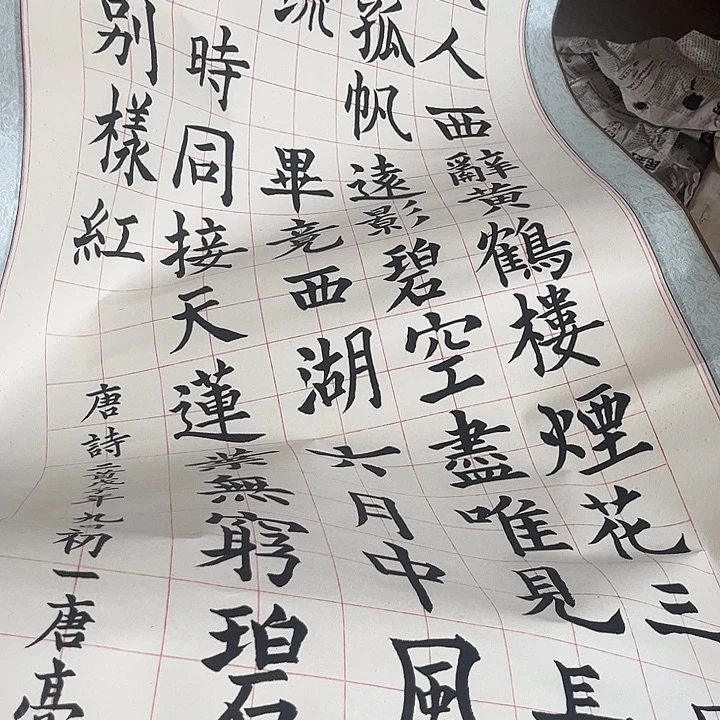 人西辭黃鶴樓煙花三
孤帆遠影碧空盡唯見長
流畢竟西湖六月中風
時同接天蓮葉無窮碧
別樣紅
唐詩年九初一唐亮